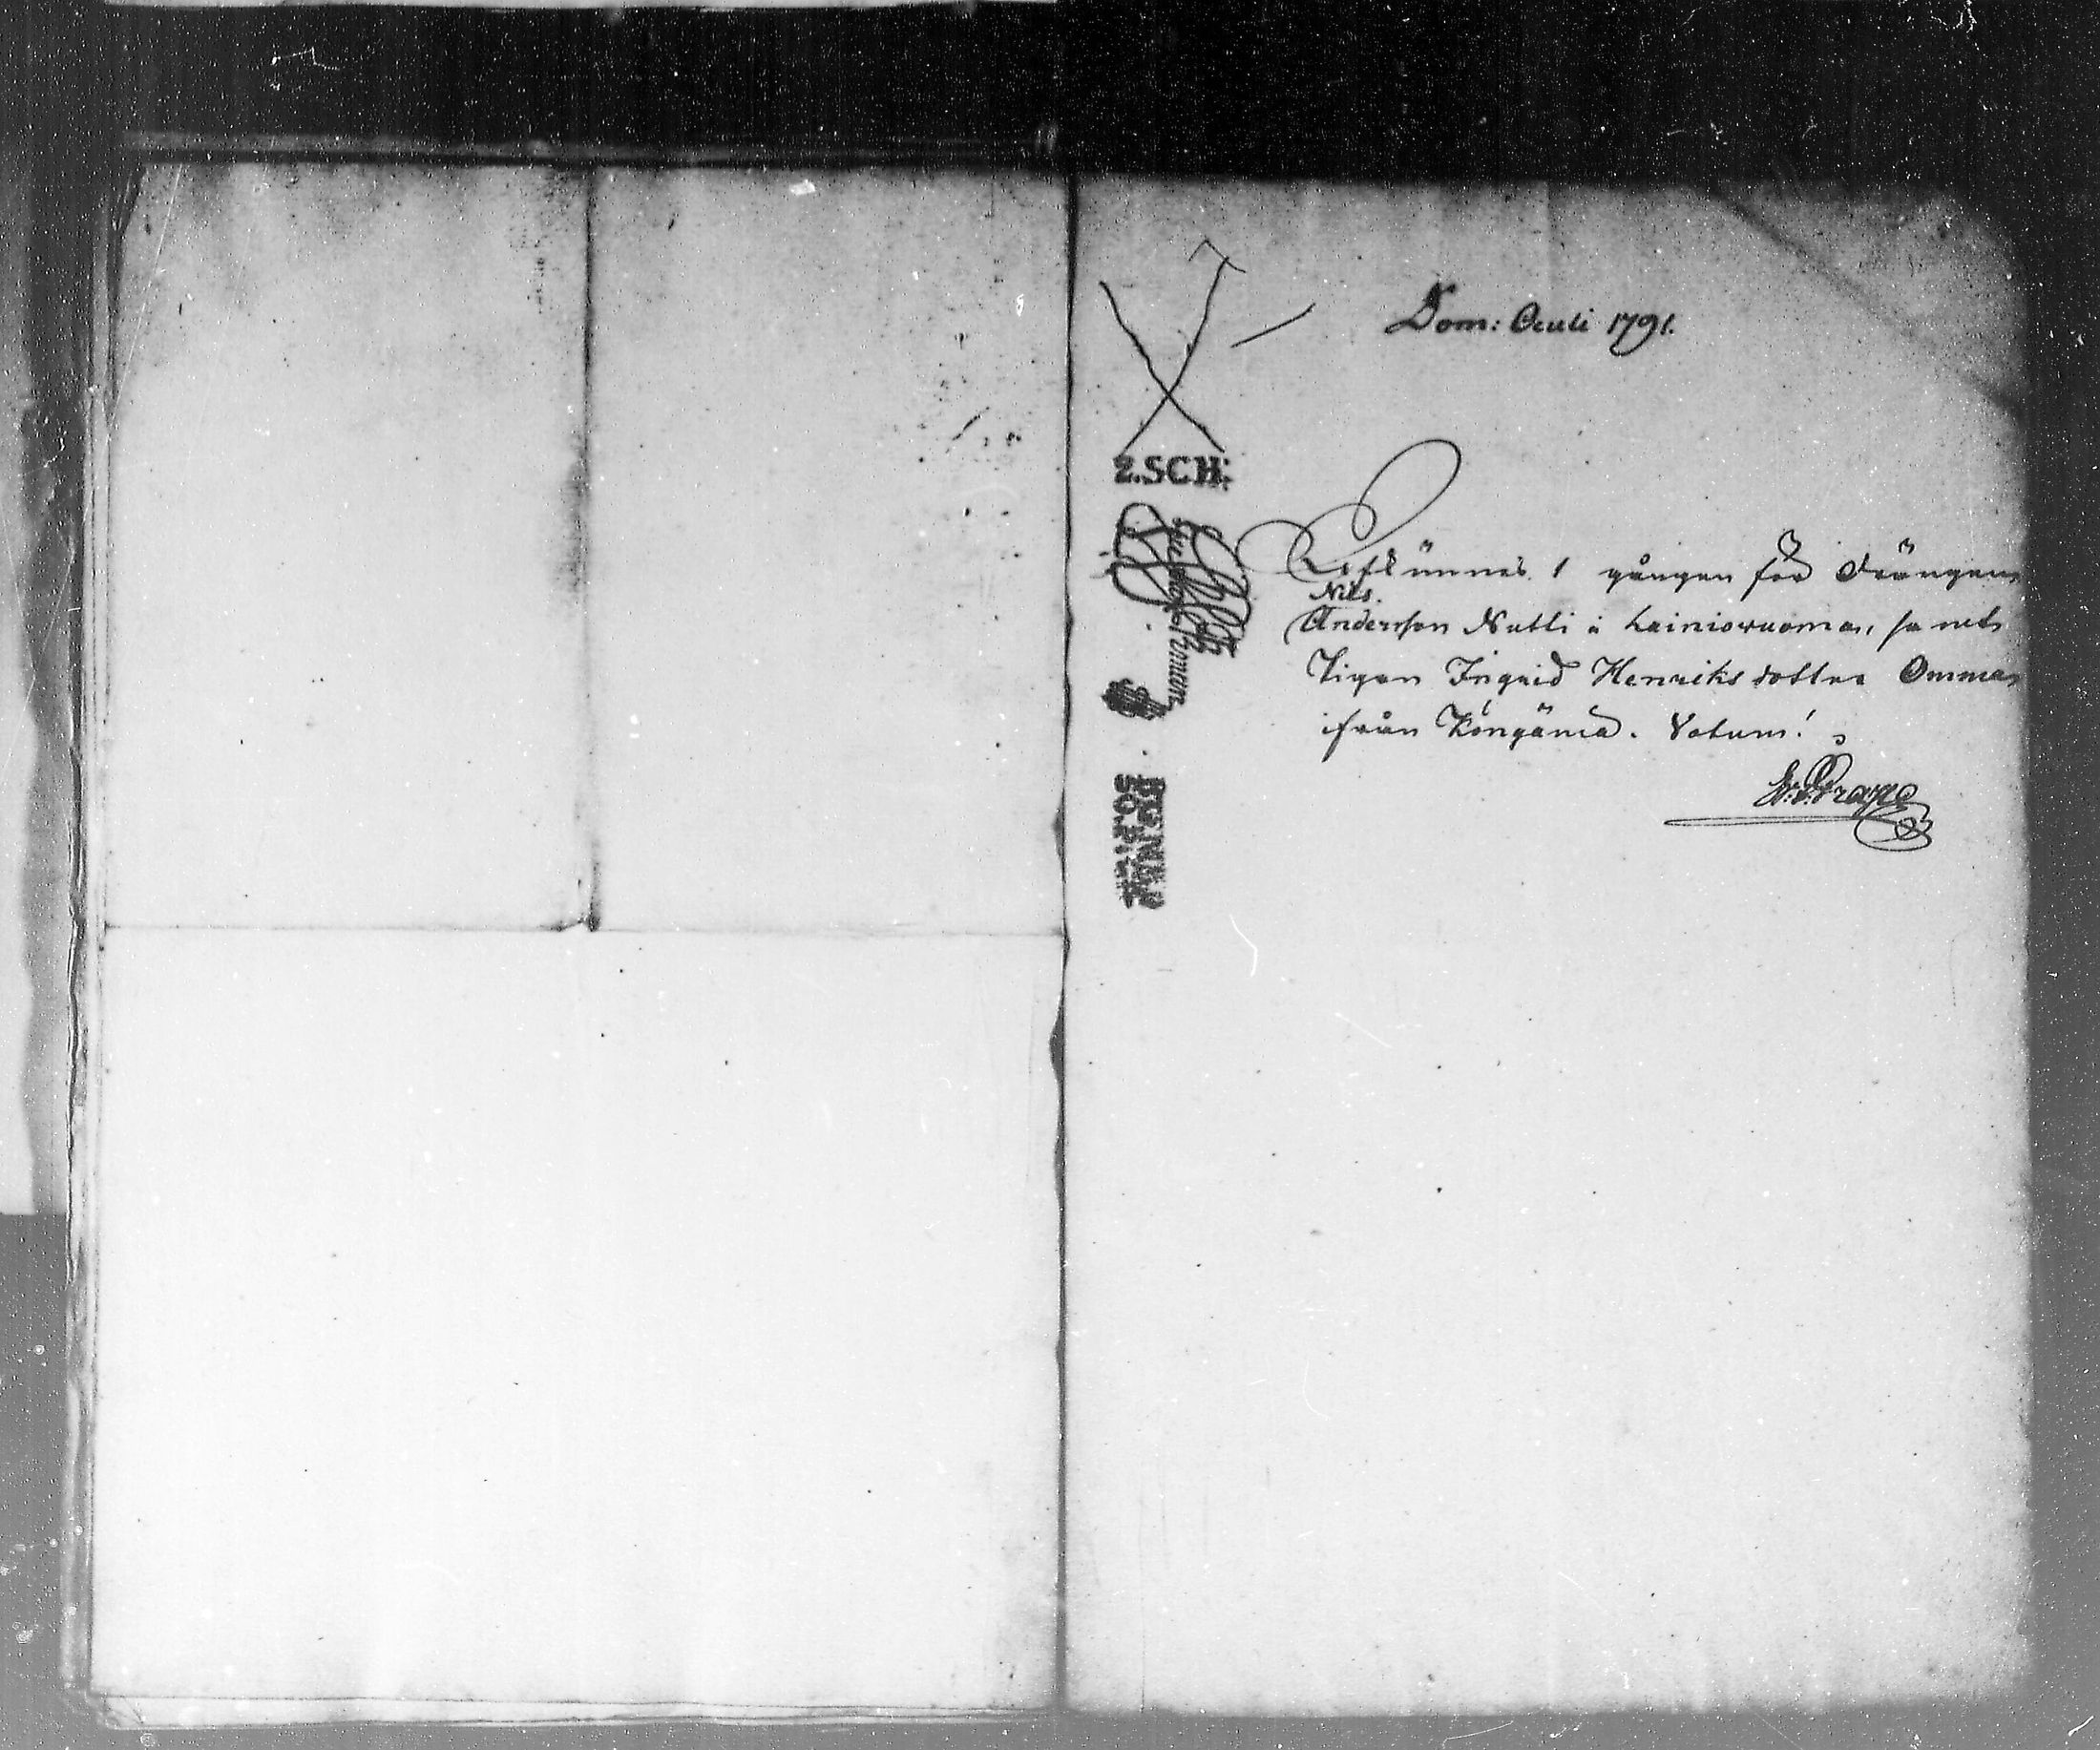 Dom: Oculi 1791.
2.SCH:
Afkünnes 1 gången för Drängen
Nils.
Andersson Nutti i Lainiowuoma, samt
Pigan Ingrid Henriksdotter Omma
ifrån Köngämä. Votum!